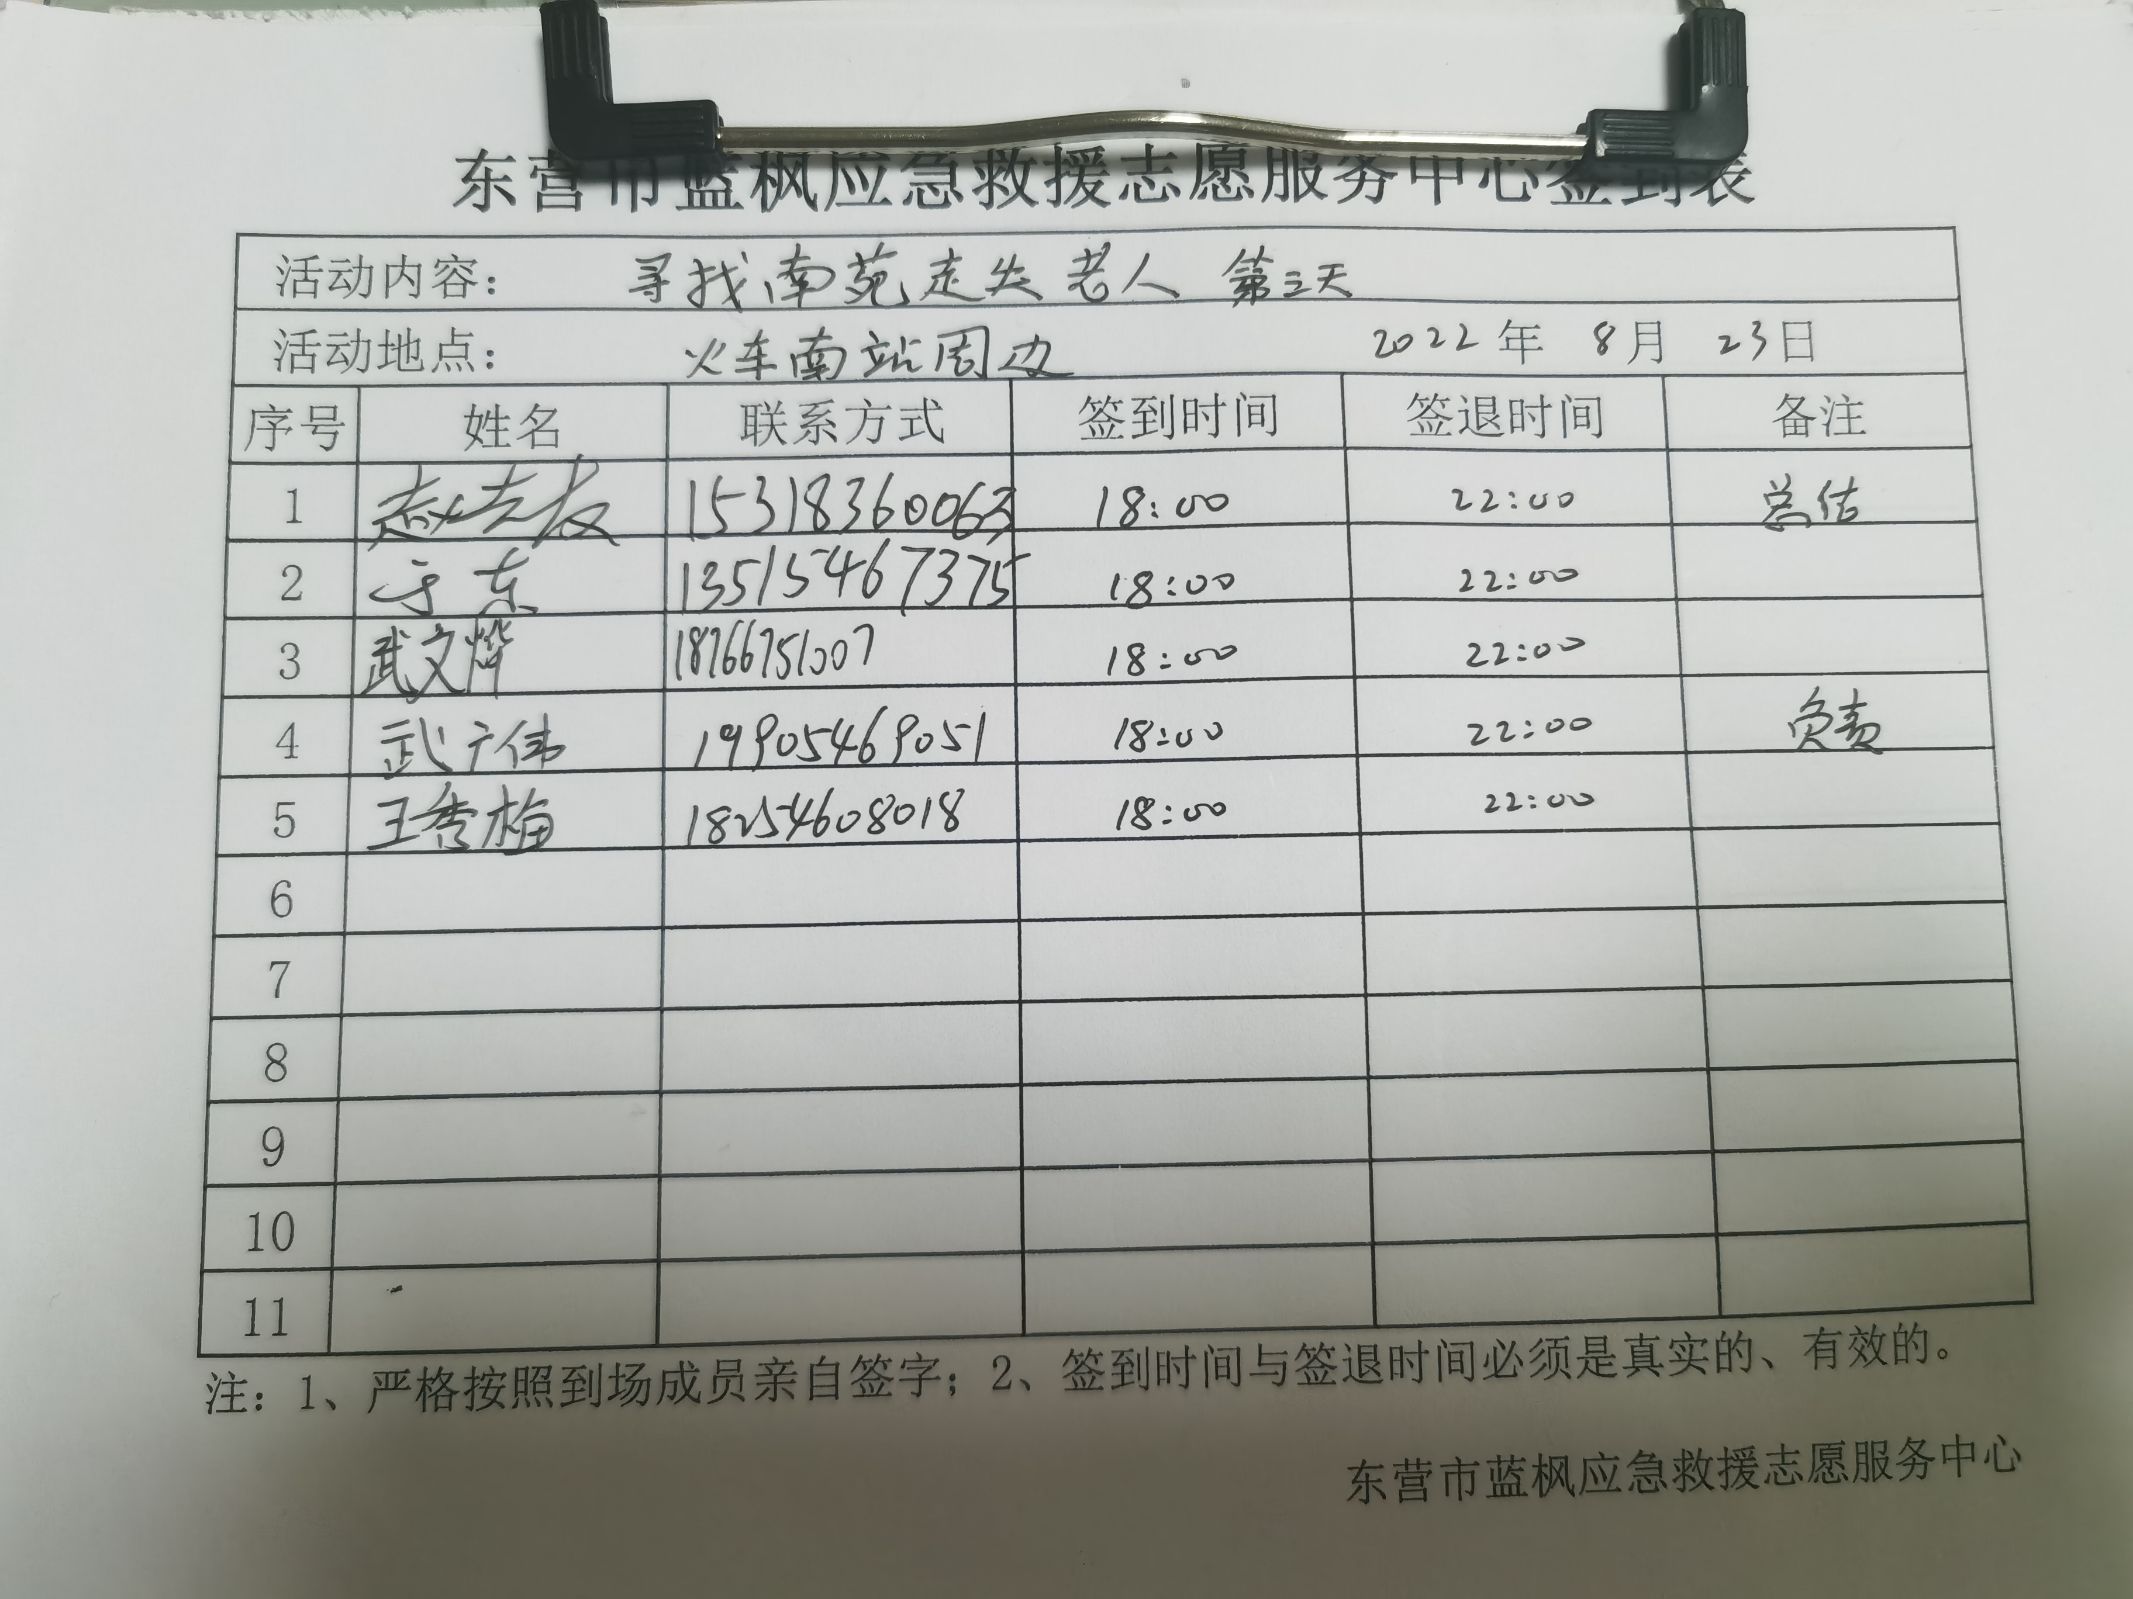 东营市蓝枫应急救援志愿服务中心签到表
活动内容： 寻找南苑走失老人 第三天
活动地点： 火车南站周边 2022年 8月 23日
序号 姓名 联系方式 签到时间 签退时间 备注
1 15318360063 18:00 22:00
2 于东 13515467375 18:00 22:00
3 武文烨 18766751007 18:00 22:00
4 武广伟 19905469051 18:00 22:00 负责
5 王秀梅 18254608018 18:00 22:00
6
7
8
9
10
11
注：1、严格按照到场成员亲自签字；2、签到时间与签退时间必须是真实的、有效的。
东营市蓝枫应急救援志愿服务中心